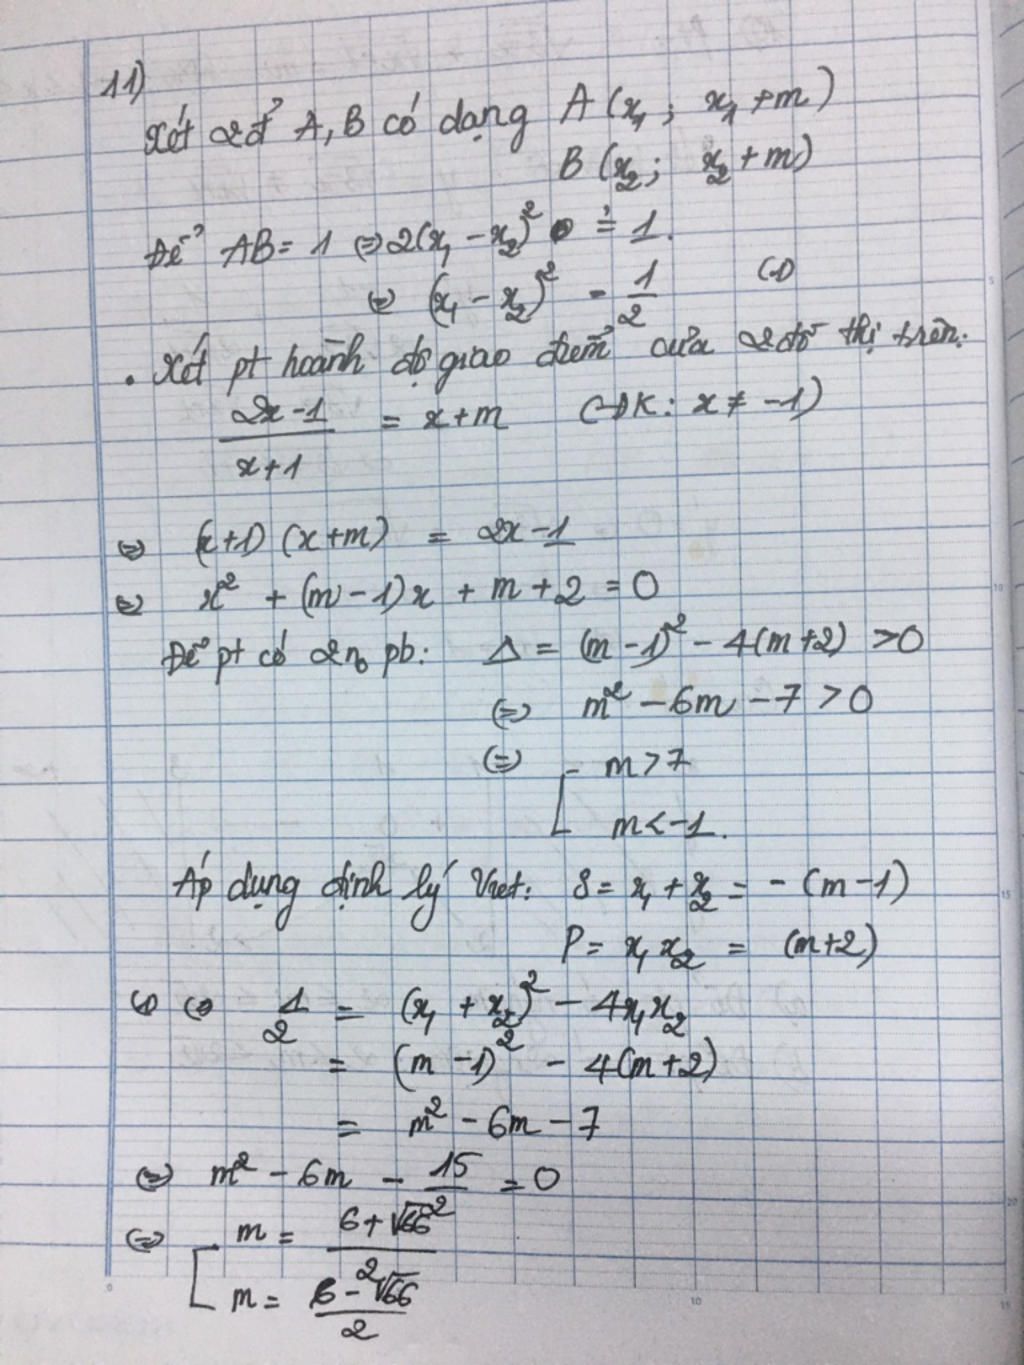 11)
Xét 2 đ' A, B có dạng A (x₁ ; x₁ + m)
B (x₂ ; x₂ + m)
Để AB = 1 ⇔ 2(x₁ - x₂)² = 1.
⇔ (x₁ - x₂)² = 1/2 (1)
. Xét pt hoành độ giao điểm của 2 đồ thị trên:
(2x-1)/(x+1) = x + m (ĐK: x ≠ -1)
⇔ (x+1) (x+m) = 2x - 1
⇔ x² + (m-1)x + m + 2 = 0
Để pt có 2 n₀ pb: Δ = (m-1)² - 4(m+2) > 0
⇔ m² - 6m - 7 > 0
⇔ [ m > 7
m < -1.
Áp dụng định lý Viet: S = x₁ + x₂ = - (m-1)
P = x₁ x₂ = (m+2)
(1) ⇔ 1/2 = (x₁ + x₂)² - 4x₁x₂
= (m-1)² - 4(m+2)
= m² - 6m - 7
⇔ m² - 6m - 15/2 = 0
⇔ [ m = (6+√66)/2
m = (6-√66)/2